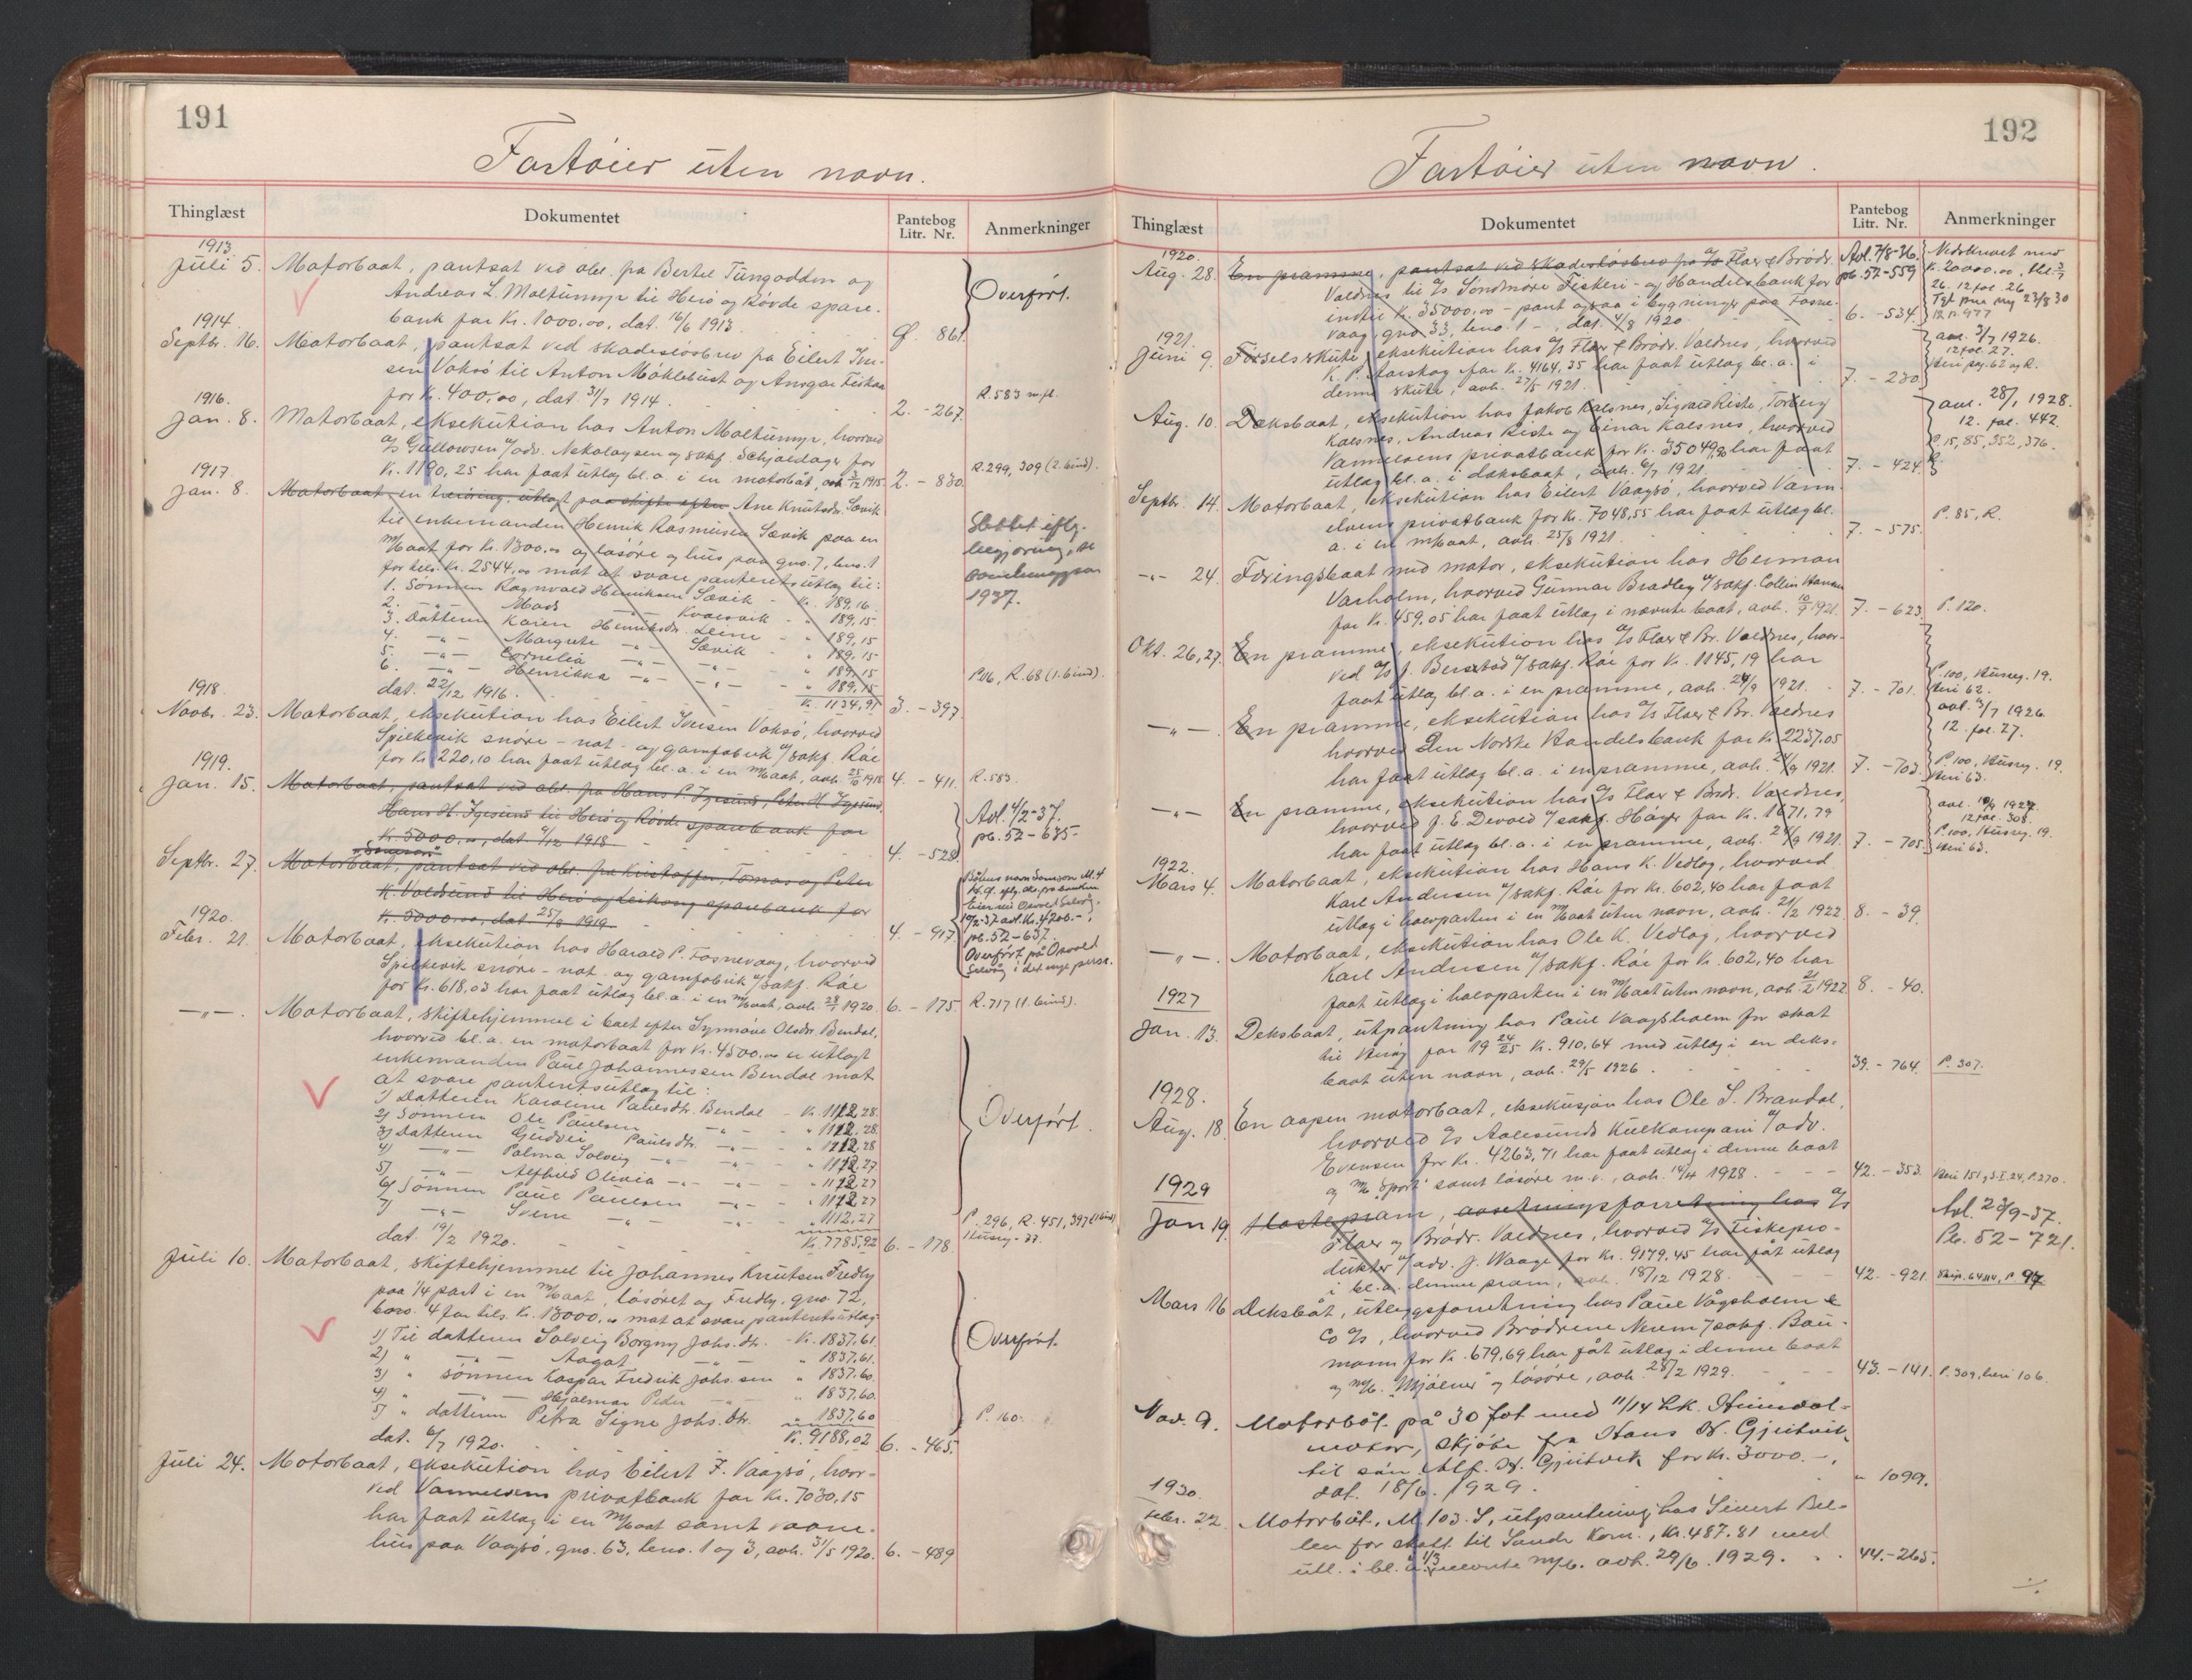 191
Fartöier uten navn.
Thinglæst
Dokumentet
Pantebog
Litr. Nr.
Anmerkninger
1913.
Juli 5. Motorbaat, pantsat ved obl. fra Bertel Tungodden og
Andreas L. Moltumyr til Herö og Rövde spare-
bank for Kr. 1000,00, dat. 16/6 1913. 861.
Overfört.
1914.
Septbr. 16. Motorbaat, pantsat ved skadeslösbrev fra Eilert Iver-
sen Voksö til Anton Möklebust og Ansgar
for Kr. 400,00, dat. 31/7 1914. 2. - 267.
R. 583 m.fl.
1916.
Jan. 8. Motorbaat, eksekution hos Anton Moltumyr, hvorved
A/S Gullowsen v/adv. Nikolaysen og sakf. Schjoldager for
Kr. 1190,25 har faat utlæg bl. a. i en motorbåt, avh. 3/12 1915. 2. - 830.
R. 299, 309 (2. bind).
1917.
Jan. 8. Motorbaat, en treöring, utlagt paa skifte efter Ane Knutsdr. Sævik
til enkemanden Henrik Rasmussen Sævik paa en
m/baat for Kr. 1300,00 og lösöre og hus paa gno. 7, bno. 1
for tils. Kr. 2544,00 mot at svare panteretsutlæg til:
1. Sönnen Ragnvald Henriksen Sævik - Kr. 189,16.
2. -"- Mads -"- Kvalsvik - " 189,15
3. Datteren Karen Henriksdr. Leine - " 189,15
4. -"- Margrete -"- Sævik - " 189,15
5. -"- Cornelia -"- -"- - " 189,15
6. -"- Henrikka -"- -"- - " 189,15
dat. 22/12 1916. Kr. 1134,91 3. - 397
Slettet iflg.
1937.
P. 16, R. 68 (1. bind).
1918.
Novbr. 23. Motorbaat, eksekution hos Eilert Iversen Voksö, hvorved
Spilkevik snöre- not- og garnfabrik v/sakf. Röe
for Kr. 220,10 har faat utlæg bl. a. i en m/baat, avh. 25/10 1918 4. - 411.
R. 583.
1919.
Jan. 15. Motorbaat, pantsat ved obl. fra Hans P. Igesund, Peter H. Igesund,
Hans H. Igesund til Herö og Rövde sparebank for
Kr. 5000,00, dat. 4/12 1918 4. - 528.
Avl. 4/2-37.
pb. 52 - 635-
"Samson"
Septbr. 27. Motorbaat, pantsat ved obl. fra Kristoffer, Tomas og Peter
K. Voldsund til Herö og Leikong sparebank for
Kr. 5000,00, dat. 25/8 1919. 4. - 917.
Båtens navn Samson M. 4
10/2-37 avl. Kr. 4200.-,
pb. 52 - 637.
Overfört på Osvald
1920.
Febr. 21. Motorbaat, eksekution hos Harald P. Fosnevaag, hvorved
Spilkevik snöre- not- og garnfabrik v/sakf. Röe
for Kr. 618,03 har faat utlæg bl. a. i en m/baat, avh. 28/1 1920. 6. - 175.
R. 717 (1. bind).
-"-. Motorbaat, skiftehjemmel i boet efter Synnöve Olsdr. Bendal,
hvorved bl. a. en motorbaat for Kr. 4500,00 er utlagt
enkemanden Paul Johannessen Bendal mot
at svare panteretsutlæg til:
1) Datteren Karoline Paulsdtr. Bendal - Kr. 1112,28.
2) Sönnen Ole Paulsen -"- - " 1112,28.
3) Datteren Gudvei Paulsdtr. -"- - " 1112,28
4) -"- Palma Solveig -"- -"- - " 1112,27
5) -"- Alfhild Olivia -"- -"- - " 1112,27
6) Sönnen Paul Paulsen -"- - " 1112,27
7) -"- Svein -"- -"- " 1112,27
dat. 19/2 1920. Kr. 7785,92 6. - 178.
Overfört.
P. 296, R. 451, 397 (1 bind)
Juli 10. Motorbaat, skiftehjemmel til Johannes Knutsen Fredly
paa 1/4 part i en m/baat, lösöret og Fredly, gno. 72,
bno. 4 for tils. Kr. 13000,00 mot at svare panteretsutlæg:
1) Til datteren Solveig Borgny Johs.dtr. - Kr. 1837,61.
2) " -"- Aagot -"- " 1837,61.
3) " sönnen Kaspar Fredrik Johs.sen " 1837,60.
4) " -"- Hjalmar Peder -"- " 1837,60.
5) " datteren Petra Signe Johs.dtr. " 1837,60
dat. 6/7 1920. Kr. 9188,02 6. - 465.
Overfört.
P. 160.
Juli 24. Motorbaat, eksekution hos Eilert F. Vaagsö, hvor-
ved Vannelvens privatbank for Kr. 7030,15
har faat utlæg i en m/baat samt vaane-
hus paa Vaagsö, gno. 63, bno. 1 og 3, avh. 31/5 1920. 6. - 489
192
Fartöier uten navn.
Thinglæst
Dokumentet
Pantebog
Litr. Nr.
Anmerkninger
1920.
Aug. 28. En pramme, pantsat ved skadeslösbrev fra A/S Flaer & Brödr.
Voldnes til A/S Söndmöre Fiskeri- og Handelsbank for
indtil Kr. 35000,00 - pant ogsaa i bygninger paa Fosne-
vaag, gno. 33, bno. 1 -, dat. 4/8 1920. 6. - 534.
Avl. 7/8-36.
pb. 52-559
Nedskrevet med
Kr. 20000,00,
26. 12 fol. 26
12 p. 977
1921.
Juni 9. Förselsskute, eksekution hos A/S Flaer & Brödr. Voldnes, hvorved
K. P. Aarskog for Kr. 4164,35 har faat utlæg bl. a. i
denne skute, avh. 27/5 1921. 7. - 230.
avl. 3/7 1926.
12 fol. 27.
Aug. 10. Dæksbaat, eksekution hos Jakob Kalsnes, Sigvard Riste, Torberg
Kalsnes, Andreas Riste og Einar Kalsnes, hvorved
Vannelvens privatbank for Kr. 35049,90 har faat
utlæg bl. a. i dæksbaat, avh. 6/7 1921. 7. - 424.
avl. 28/1 1928.
12. fol. 442.
P. 15, 85, 352, 376.
Septbr. 14. Motorbaat, eksekution hos Eilert Vaagsö, hvorved Vann-
elvens privatbank for Kr. 7048,55 har faat utlæg bl.
a. i en m/baat, avh. 25/8 1921. 7. - 575.
P. 85, R.
-"- 24. Föringsbaat med motor, eksekution hos Herman
Varholm, hvorved Gunnar Bradley v/sakf. Collin Hansen
for Kr. 459,05 har faat utlæg i nævnte baat, avh. 10/9 1921. 7. - 623.
P. 120.
Okt. 26, 27. En pramme, eksekution hos A/S Flaer & Br. Voldnes, hvor-
ved A/S J. Berstad v/sakf. Röe for Kr. 1145,19 har
faat utlæg bl. a. i en pramme, avh. 24/9 1921. 7. - 701.
P. 100, Husreg. 19.
Heri 62.
avl. 3/7 1926
12. fol. 27.
-"-. En pramme, eksekution hos A/S Flaer & Br. Voldnes
hvorved Den Norske Handelsbank for Kr. 2237,05
har faat utlæg bl. a. i en pramme, avh. 24/9 1921. 7. - 703.
P. 100, Husreg. 19.
Heri 63.
-"- En pramme, eksekution hos A/S Flaer & Brödr. Voldnes,
hvorved J. E. Devold v/sakf. Höyer for Kr. 1671,79
har faat utlæg bl. a. i en pramme, avh. 24/9 1921. 7. - 705.
avl. 10/9 1927.
12 fol. 308.
P. 100, Husreg. 19.
Heri 63.
1922.
Mars 4. Motorbaat, eksekution hos Hans K. Vedlog, hvorved
Karl Andersen v/sakf. Röe for Kr. 602,40 har faat
utlæg i halvparten i en m/baat uten navn, avh. 21/2 1922. 8. - 39.
-"-. Motorbaat, eksekution hos Ole K. Vedlog, hvorved
Karl Andersen v/sakf. Röe for Kr. 602,40 har
faat utlæg i halvparten i en m/baat uten navn, avh. 21/2 1922. 8. - 40.
1927
Jan. 13. Deksbaat, utpantning hos Paul Vaagsholm for skat
til Herö for 19 24/25 Kr. 910,64 med utlæg i en deks-
baat uten navn, avh. 29/5 1926. 39. - 764.
P. 307.
1928.
Aug. 18. En aapen motorbaat, eksekusjon hos Ole S. Brandal,
hvorved A/S Aalesunds Kulkompani v/adv.
Evensen for Kr. 4263,71 har faat utlæg i denne baat
og m/b. "Sport" samt lösöre m.v., avh. 14/4 1928. 42. - 353.
Heri 151, P. 270.
1929
Jan 19. pram, avsetningsforretning hos A/S
Flaer og Brödr. Voldnes, hvorved A/S Fiskepro-
dukter v/adv. J. Waage for Kr. 9179,45 har fåt utlæg
i bl. a. denne pram, avh. 18/12 1928. 42. - 921.
Avl. 23/9-37.
Pb. 52 - 721.
Mars 16 Deksbåt, utleggsforretning hos Paul Vågsholm &
Co A/S, hvorved Brödrene Nerem v/sakf. Bau-
mann for Kr. 679,69 har fåt utlæg i denne baat
og m/b. "Mjölner" og lösöre, avh. 28/2 1929. 43. - 141.
P. 309, heri 106.
Nov. 9. Motorbåt på 30 fot med 11/14 hk. Heimdal-
motor, skjöte fra Hans N. Gjertvik
til sön Alf. N. Gjertvik for Kr. 3000.-,
dat. 18/6. 1929. " 1099.
1930.
Febr. 22. Motorbåt, M. 103. S, utpantning hos Sivert Bel-
len for skatt til Sande Kom., Kr. 487.81 med
utl. i bl. a. 1/3 i nevnte m/b. avh. 29/6. 1929. 44. - 265.